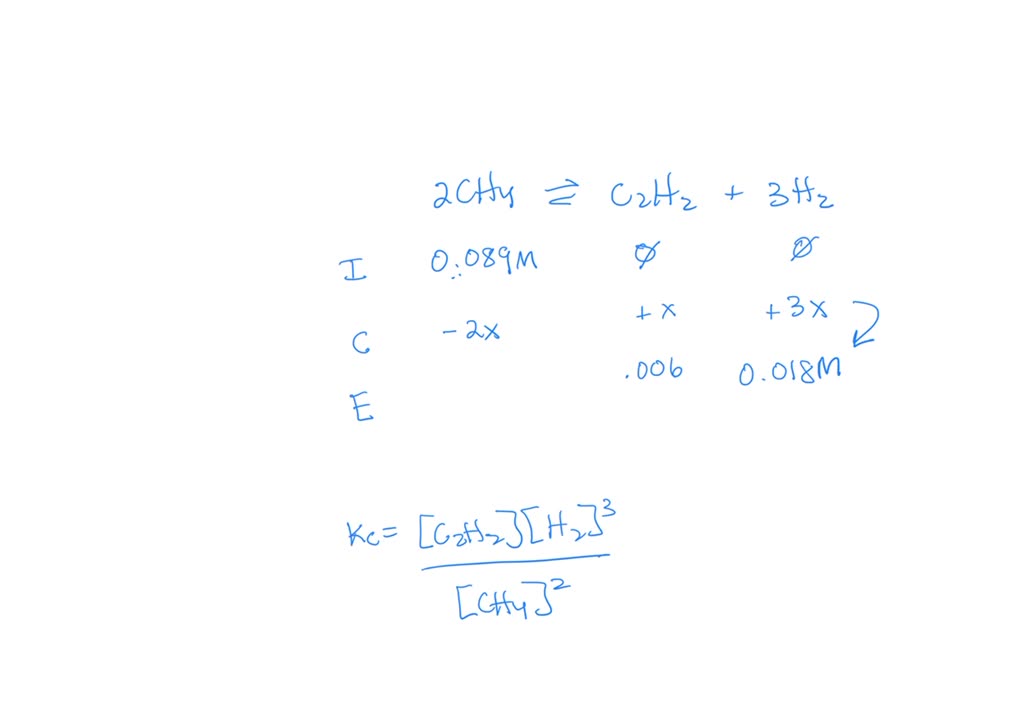 2CH4 ⇌ C2H2 + 3H2
I 0.089M ∅ ∅
C -2x +x +3x
E .006 0.018M
Kc = [C2H2][H2]^3 / [CH4]^2